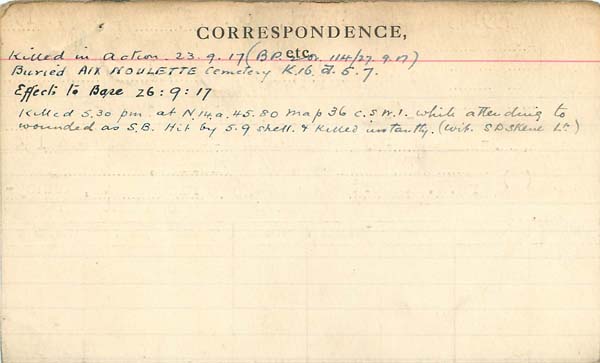 CORRESPONDENCE,
etc.
Killed in action. 23.9.17 (B.P. or. 114/27.9.17)
Buried AIX NOULETTE Cemetery K.16.a.5.7.
Effects to Base 26:9:17
Killed 5.30 pm. at N.14.a.45.80 map 36 c. S.W.1. while attending to
wounded as S.B. Hit by 5.9 shell. & killed instantly. (Wit. S.D. Skene Lt)